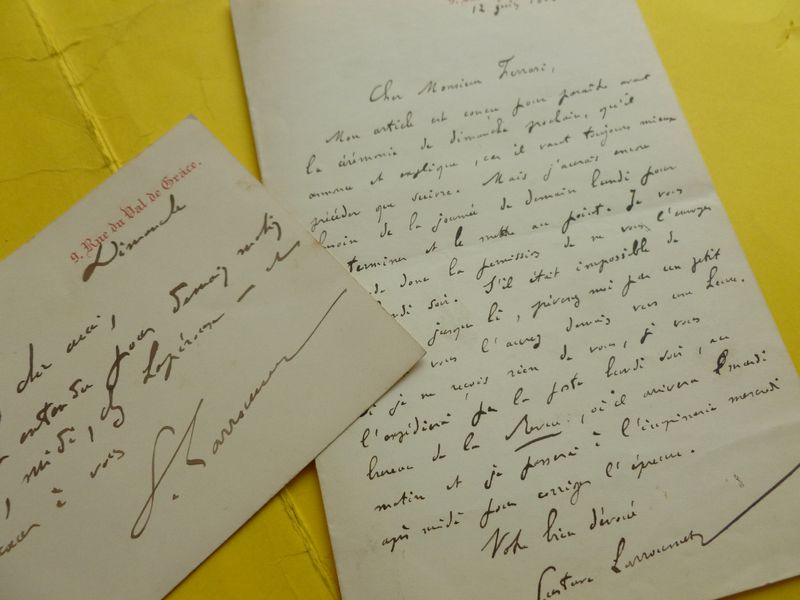 9. Rue du Val de Grâce.
Dimanche
cher ami,
entendu pour demain matin
midi, chez Lapérouse —
à vous
G. Larroumet
12 juin
Cher Monsieur Ferrari,
Mon article est conçu pour paraître avant
la cérémonie de dimanche prochain, qu'il
annonce et explique, car il vaut toujours mieux
précéder que suivre. Mais j'aurais encore
besoin de la journée de demain lundi pour
terminer et le mettre au point. Je vous
donc la permission de ne vous l'envoyer
soir. S'il était impossible de
jusque là, prévenez moi par un petit
vous l'aurez demain vers une heure.
si je ne reçois rien de vous, je vous
l'expédierai par la poste lundi soir, au
bureau de la Revue, où il arrivera mardi
matin et je passerai à l'imprimerie mercredi
après midi pour corriger l'épreuve.
Votre bien dévoué
Gustave Larroumet